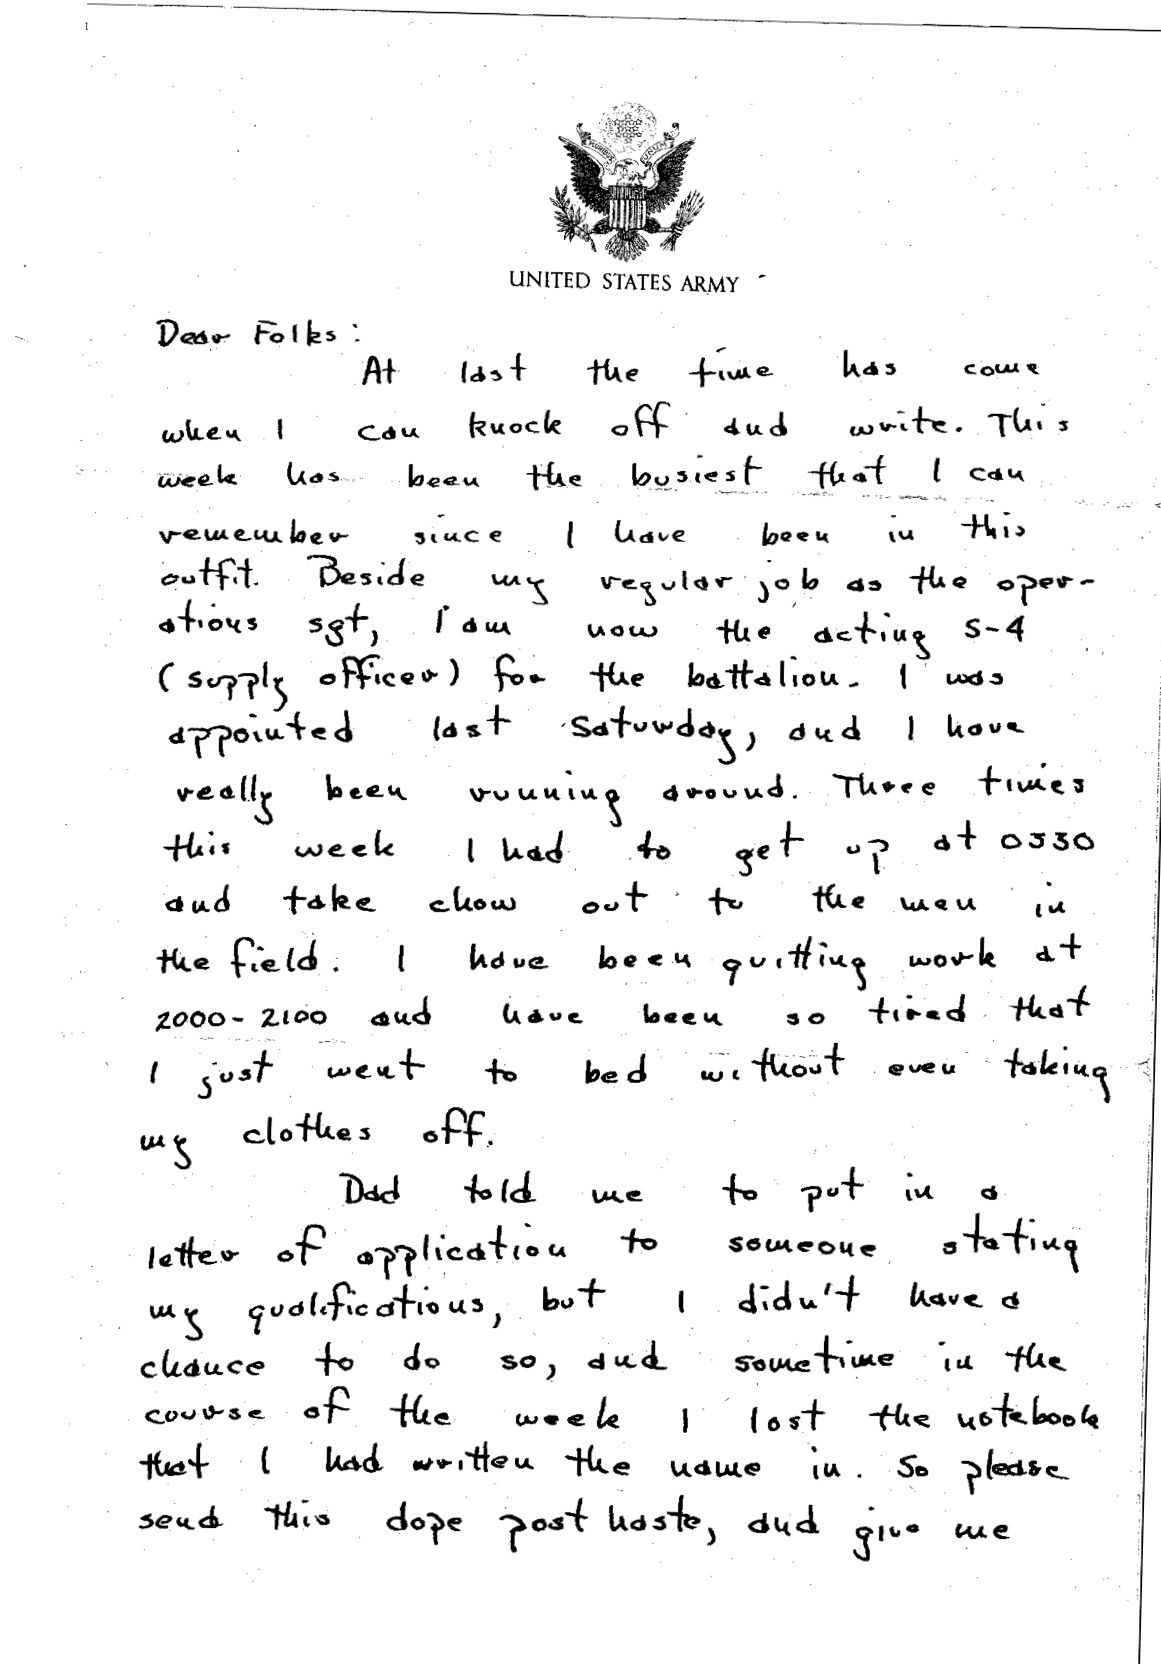 UNITED STATES ARMY
Dear Folks:
At last the time has come
when I can knock off and write. This
week has been the busiest that I can
remember since I have been in this
outfit. Beside my regular job as the oper-
ations sgt, I am now the acting S-4
(supply officer) for the battalion. I was
appointed last Saturday, and I have
really been running around. Three times
this week I had to get up at 0330
and take chow out to the men in
the field. I have been quitting work at
2000-2100 and have been so tired that
I just went to bed without even taking
my clothes off.
Dad told me to put in a
letter of application to someone stating
my qualifications, but I didn't have a
chance to do so, and sometime in the
course of the week I lost the notebook
that I had written the name in. So please
send this dope post haste, and give me